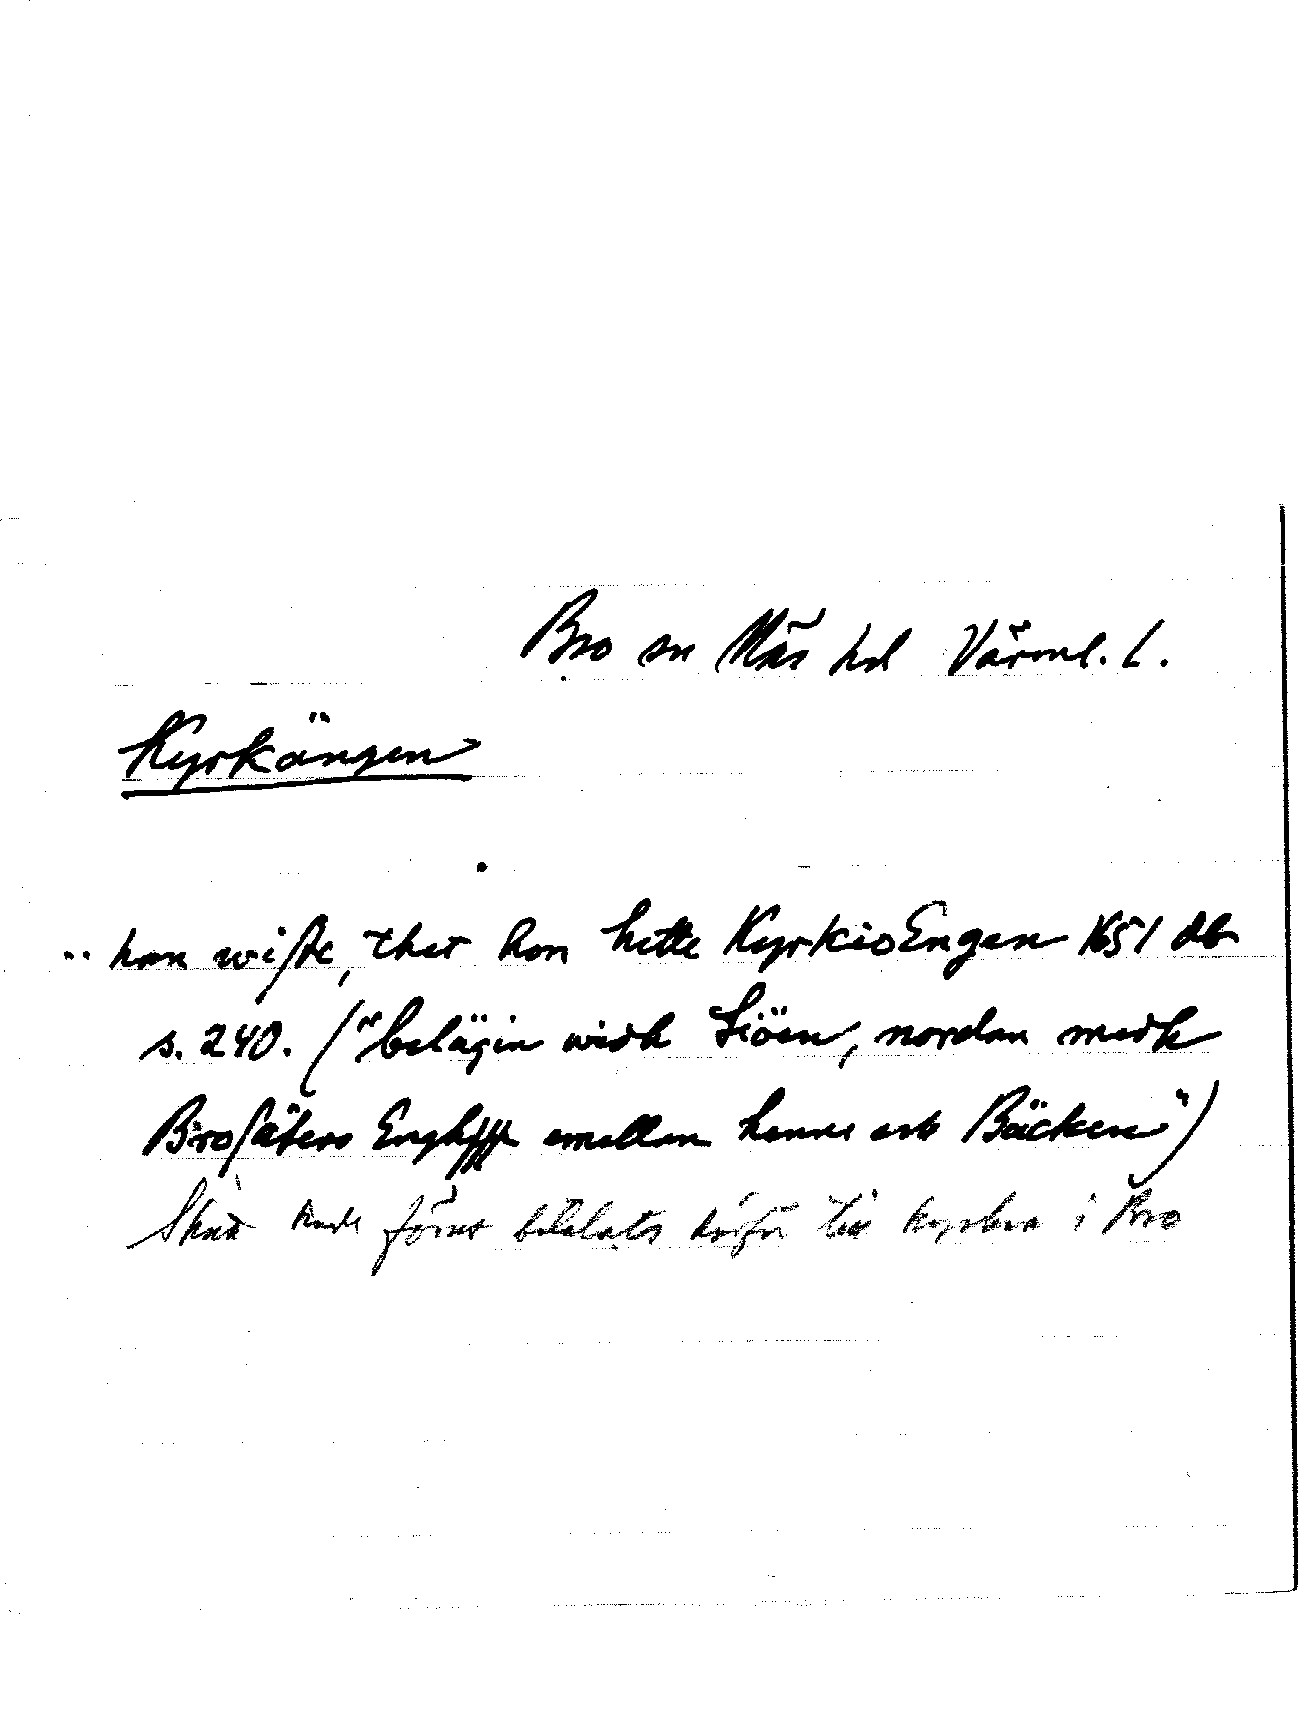 Bro sn Näs hd Värml. l.
Kyrkängen
.. han wiste, thet hon hette KyrkioEngen 1651 db
s. 240. ("belägin widh Siöen, nordan medh
Brosäters Engh emellan henne och Bäcken")
förut till kyrkan i Bro